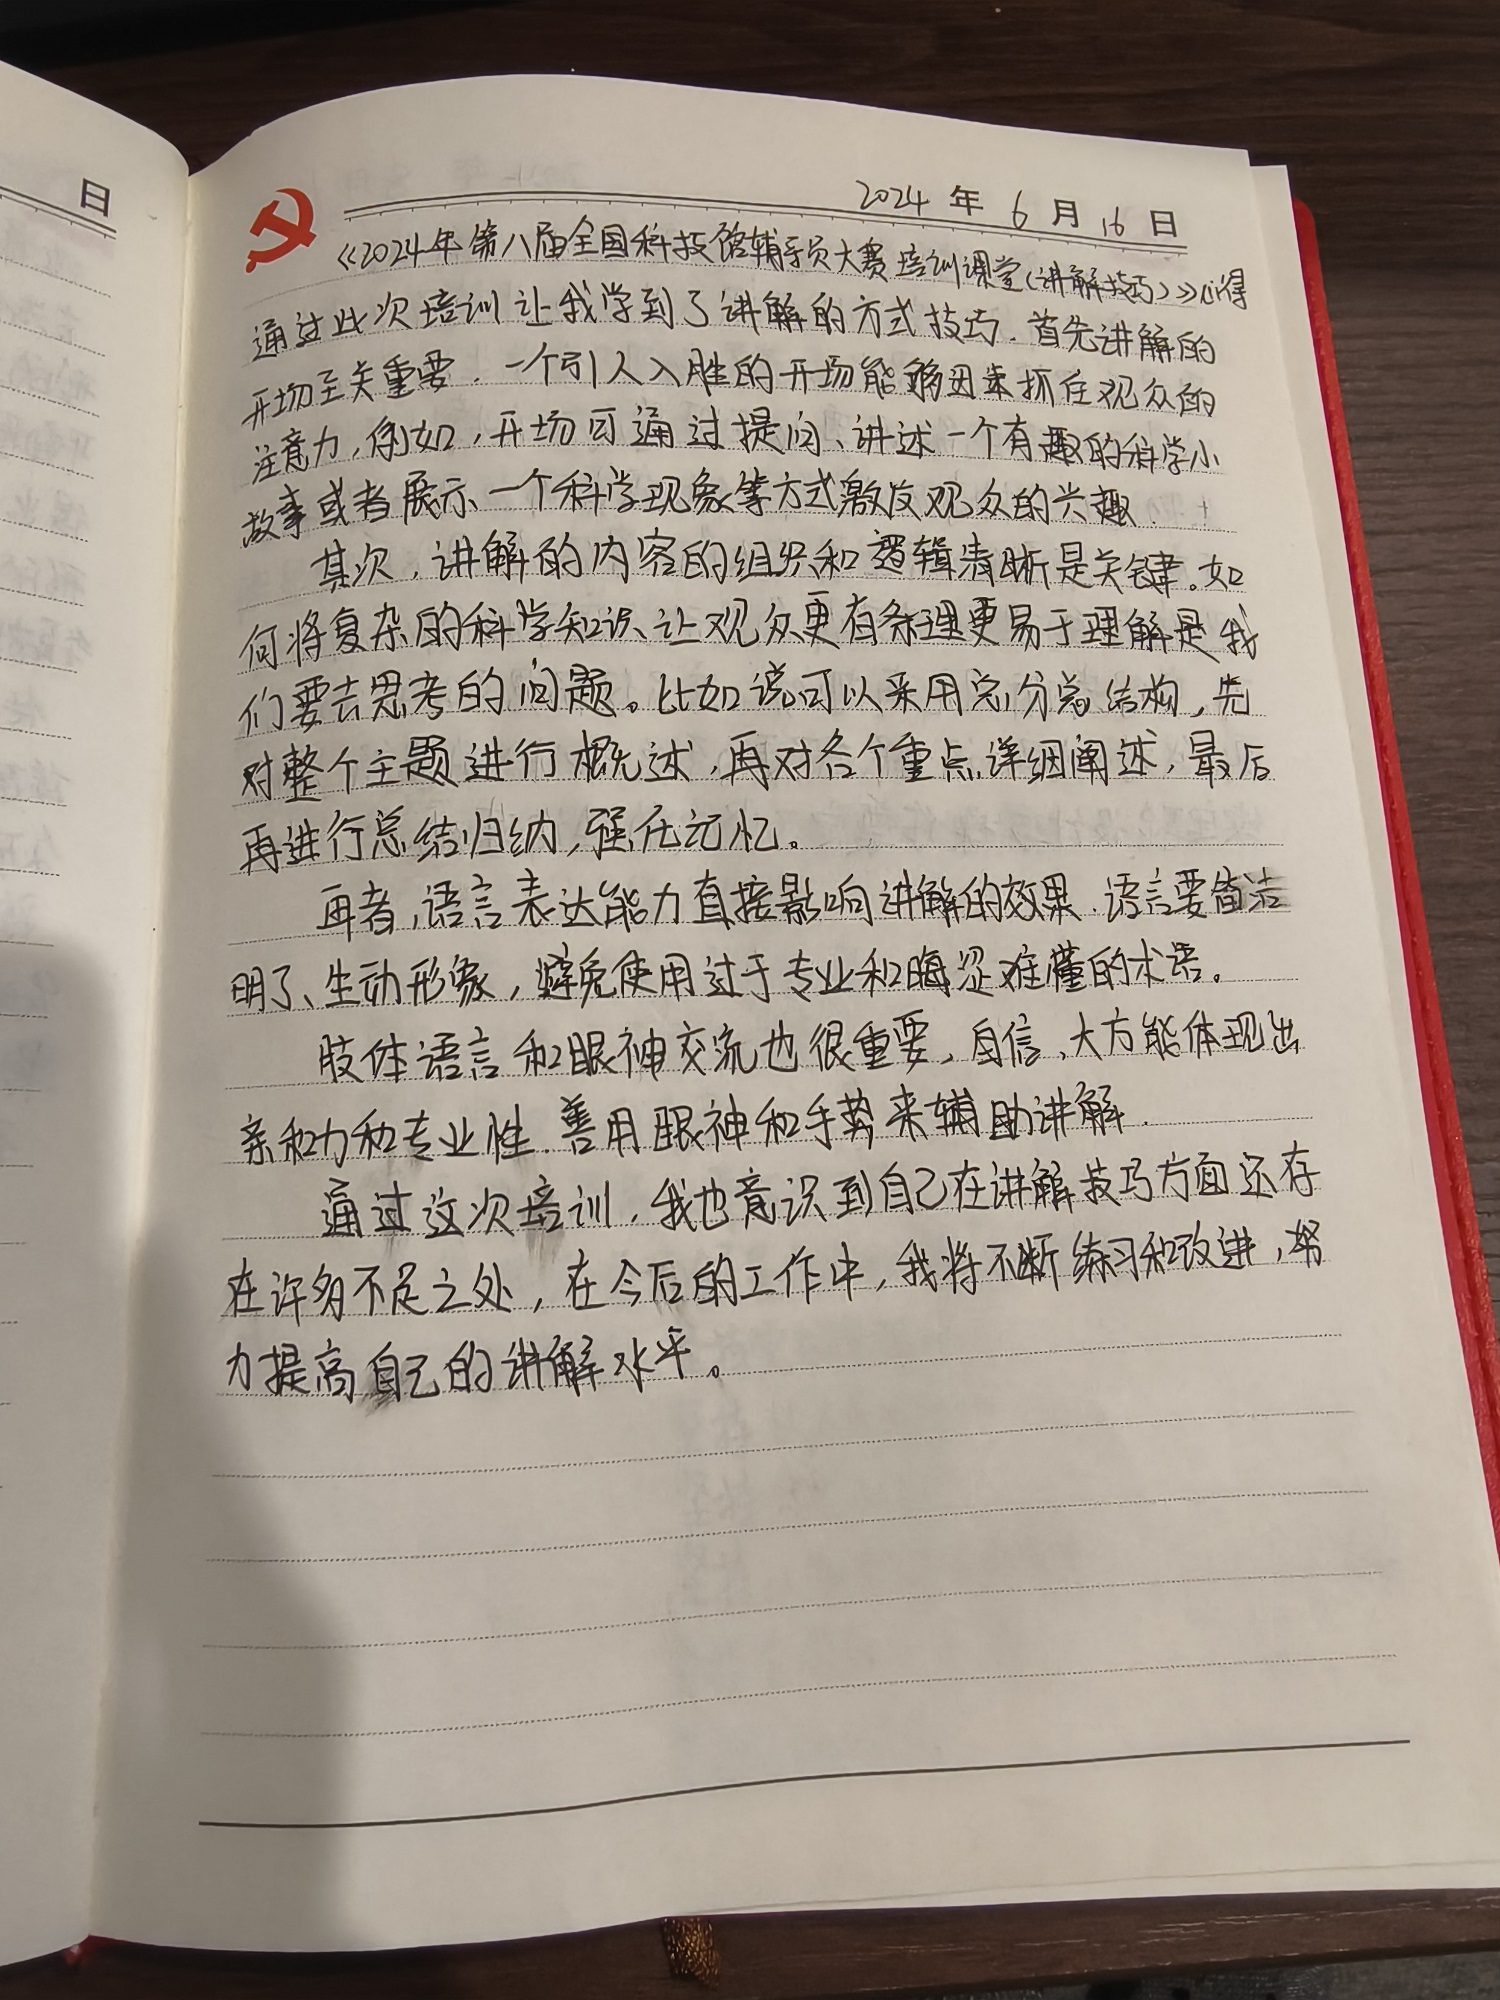 日
2024 年 6 月 16 日
《2024年第八届全国科技馆辅导员大赛培训课堂(讲解技巧)》心得
通过此次培训让我学到了讲解的方式技巧.首先讲解的
开场至关重要.一个引人入胜的开场能够迅速抓住观众的
注意力,例如,开场可通过提问、讲述一个有趣的科学小
故事或者展示一个科学现象等方式激发观众的兴趣.
其次,讲解的内容的组织和逻辑清晰是关键。如
何将复杂的科学知识让观众更有条理更易于理解是我
们要去思考的问题。比如说可以采用总分总结构,先
对整个主题进行概述,再对各个重点详细阐述,最后
再进行总结归纳,强化记忆。
再者,语言表达能力直接影响讲解的效果.语言要简洁
明了、生动形象,避免使用过于专业和晦涩难懂的术语。
肢体语言和眼神交流也很重要,自信、大方能体现出
亲和力和专业性.善用眼神和手势来辅助讲解.
通过这次培训,我也意识到自己在讲解技巧方面还存
在许多不足之处,在今后的工作中,我将不断练习和改进,努
力提高自己的讲解水平。